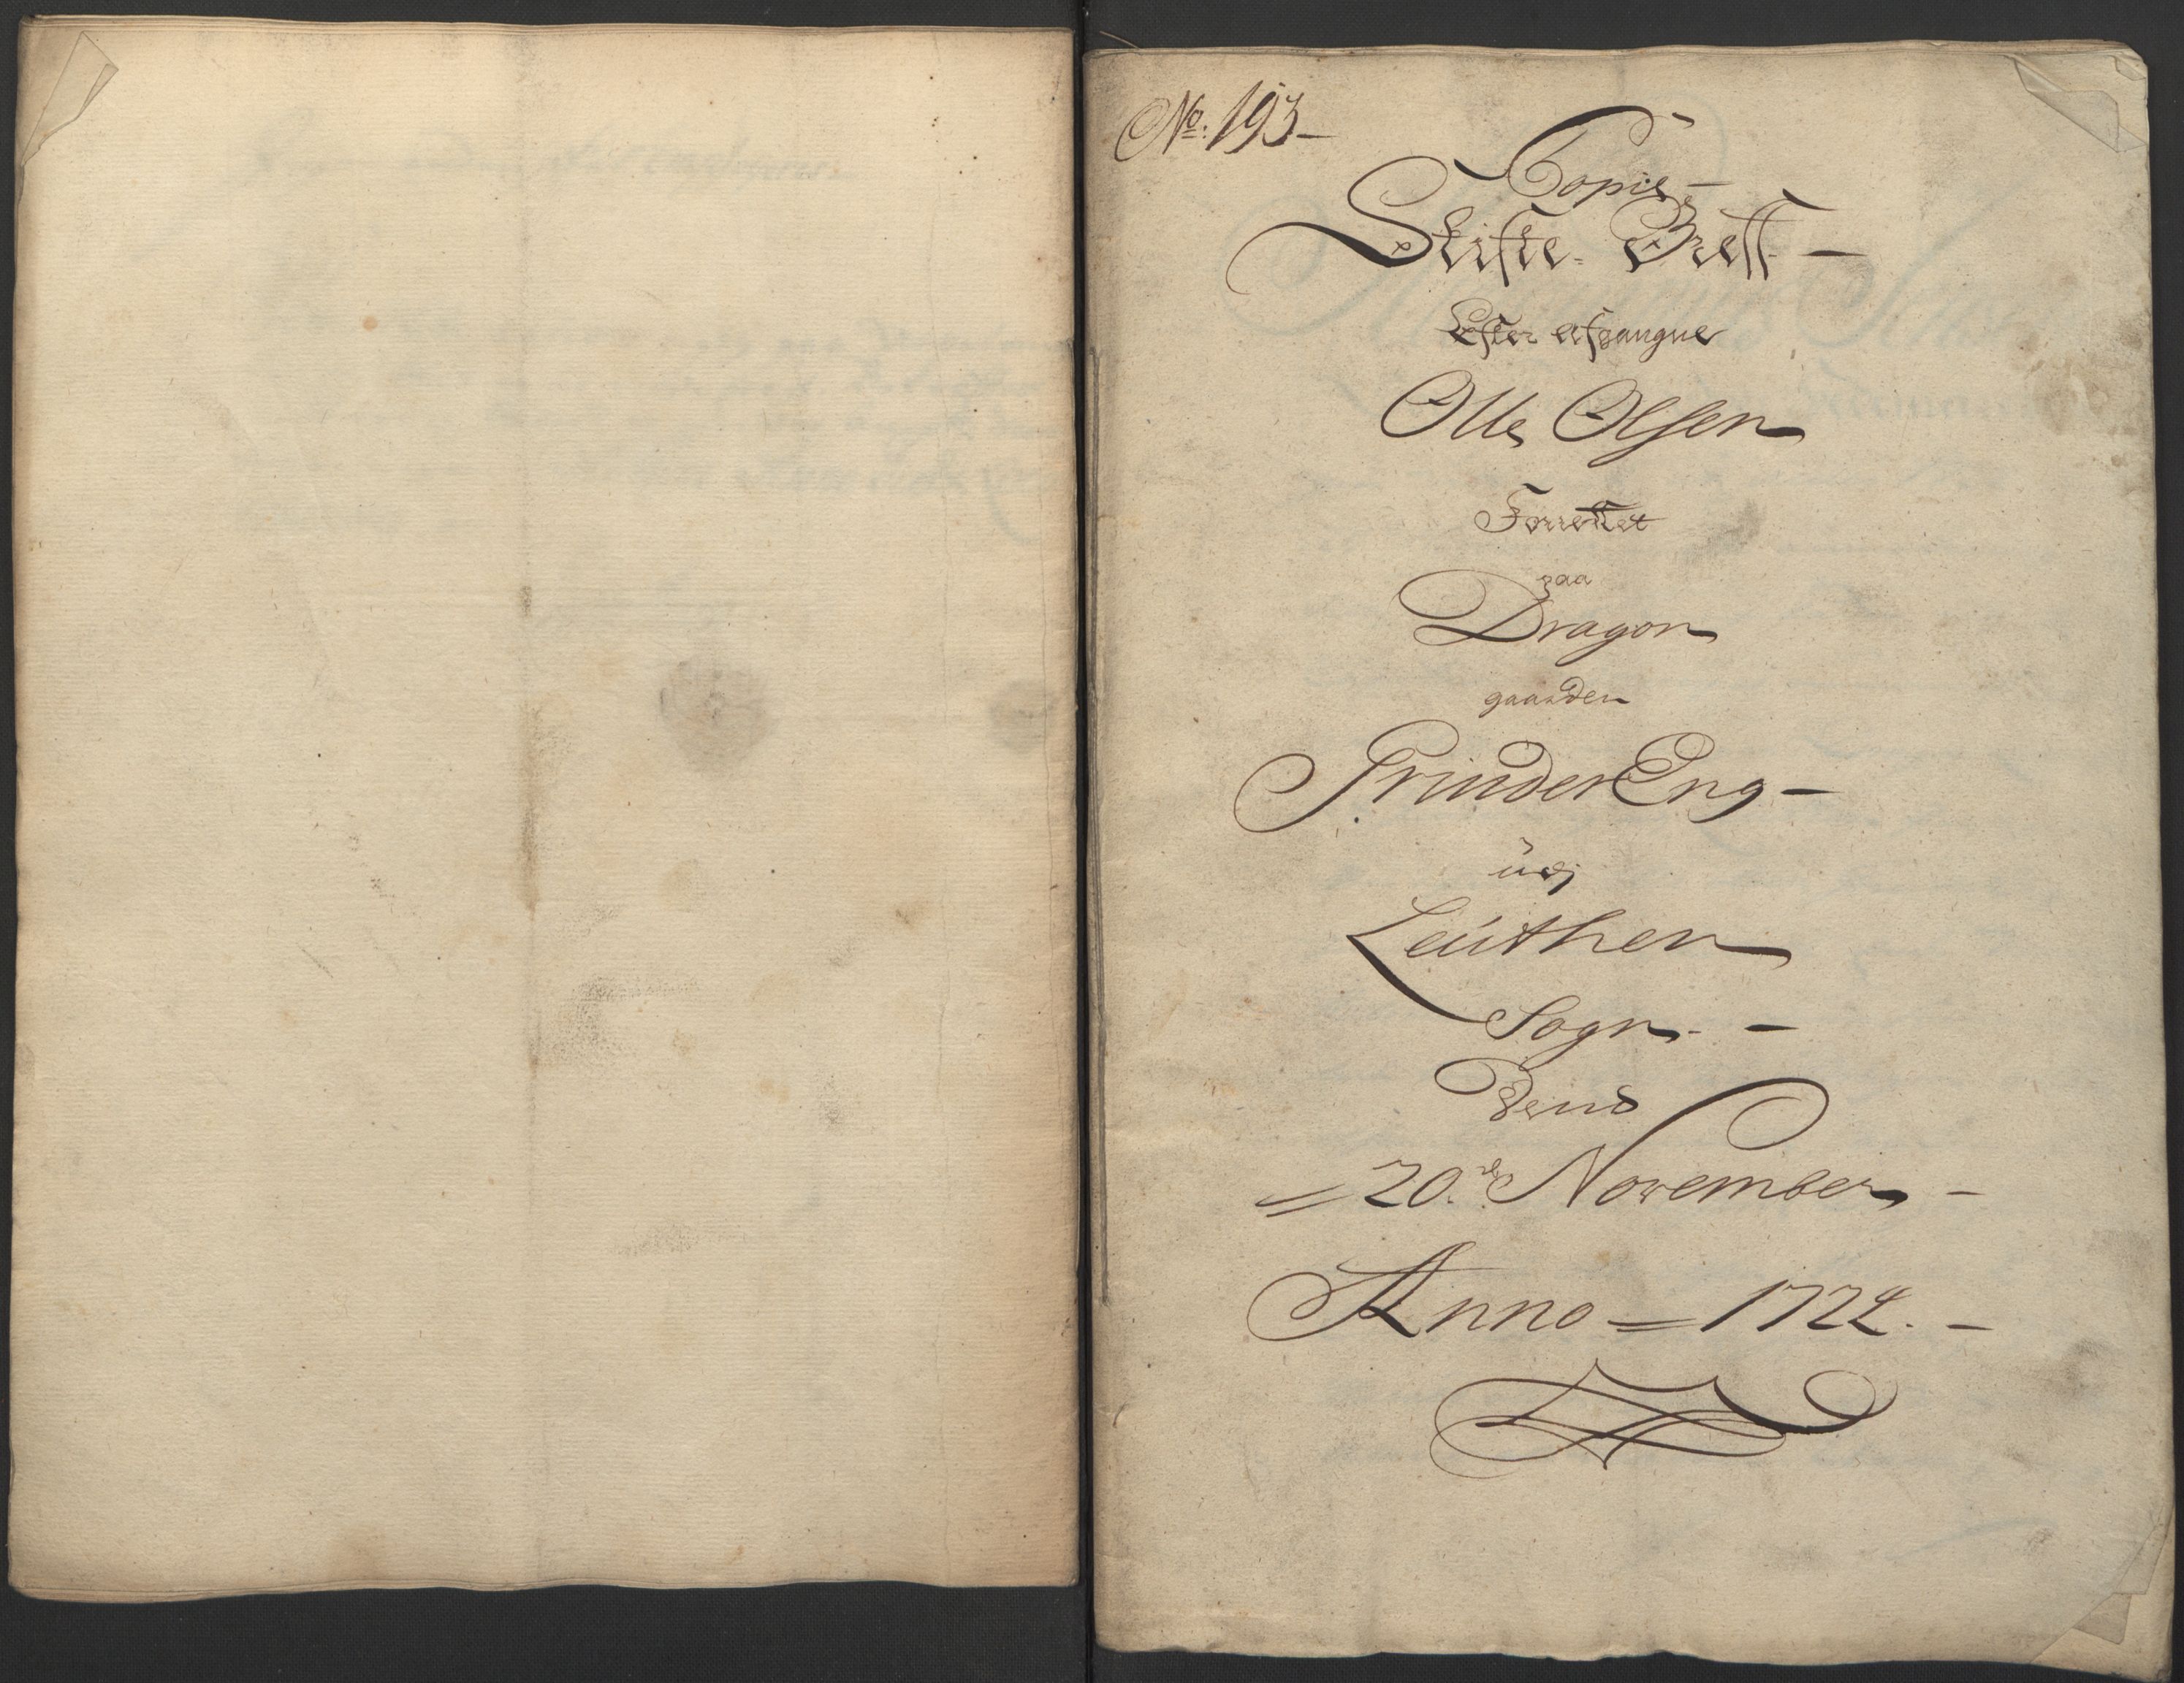 No: 193–
Copie–
Skifte- Breff–
Efter afgangne
Olle Olsen
Forrettet
paa
Dragon
gaarden
GrinderEng–
udj
Leuthen
Sogn. –
Dend
= 20.de November –
Anno = 1724. –